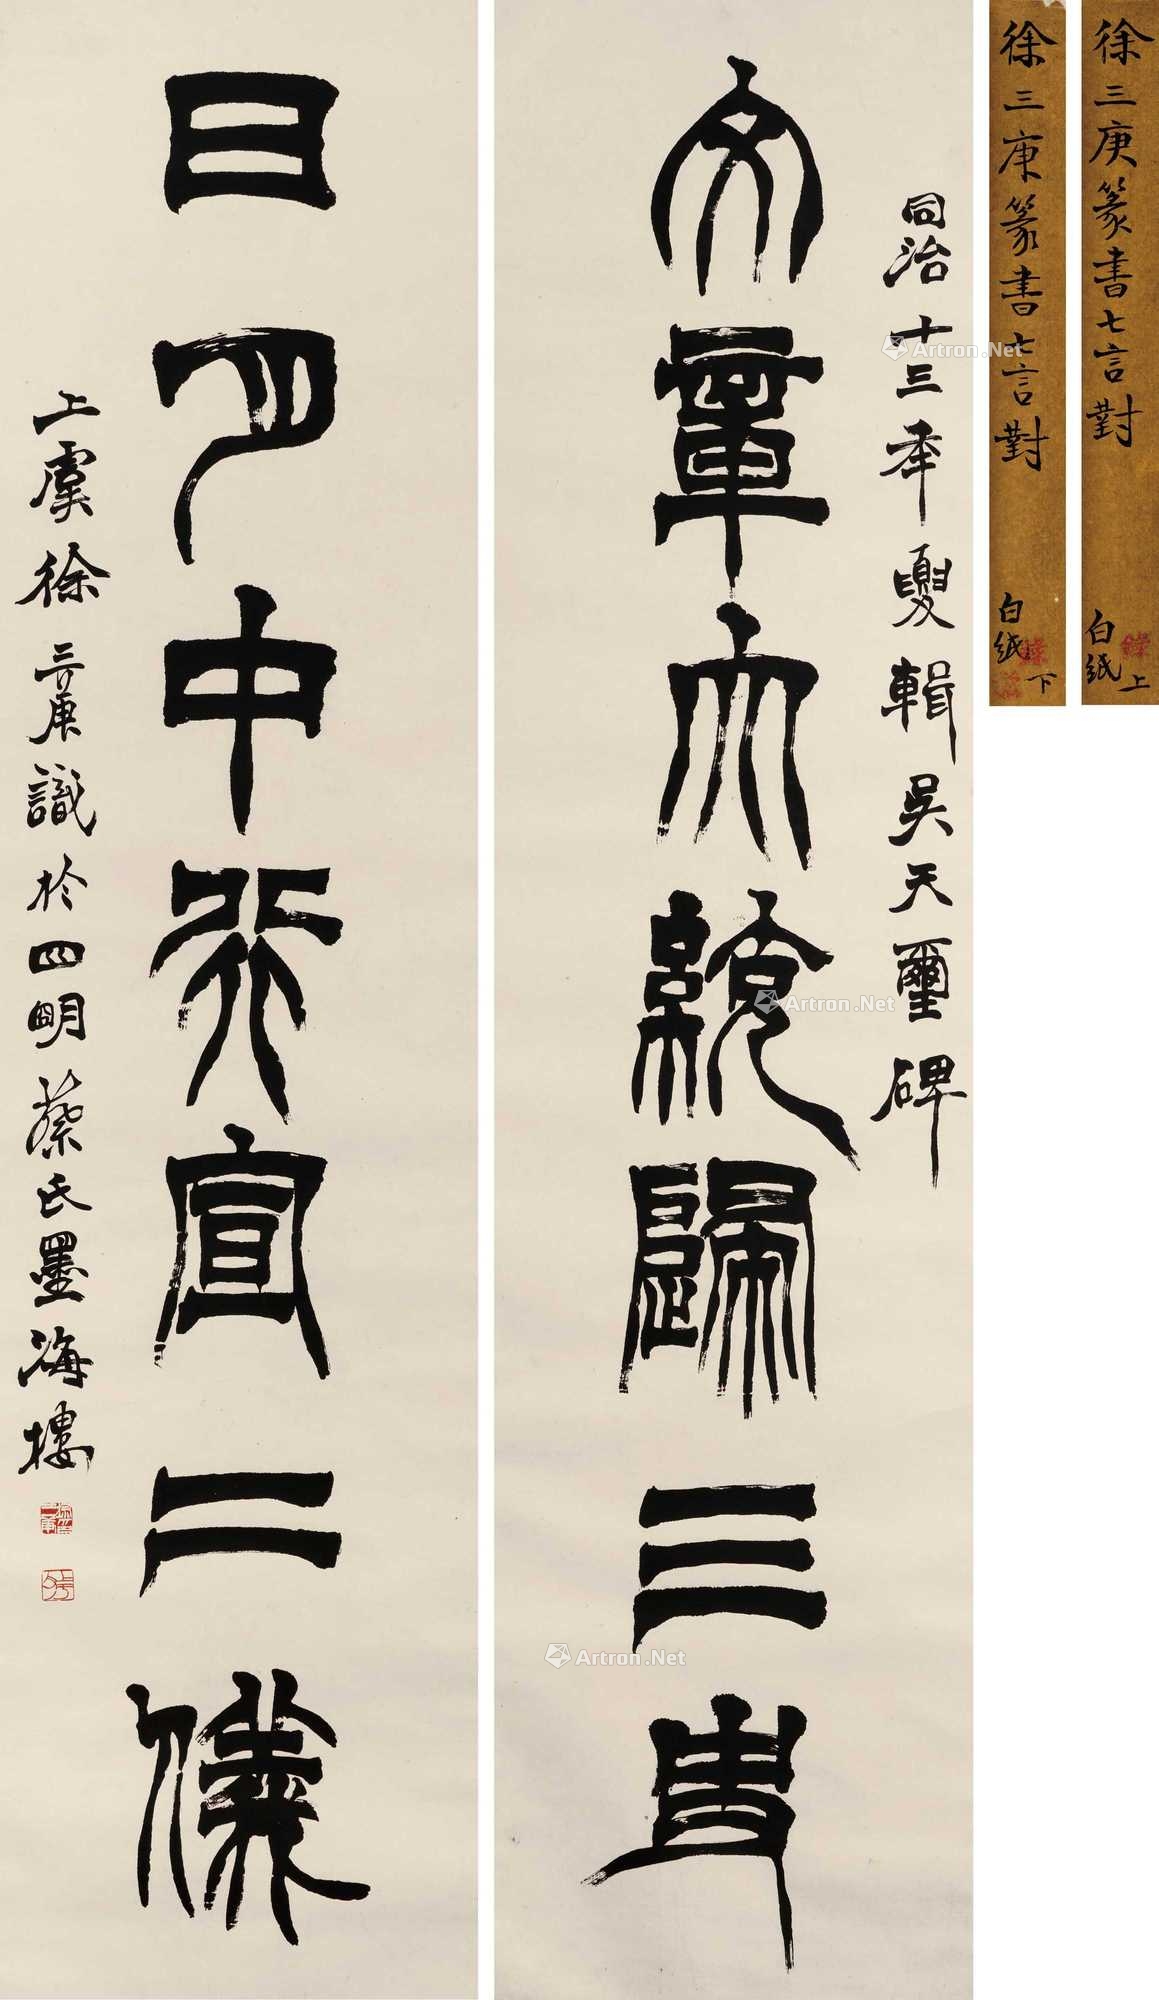 徐三庚篆書七言對
白紙
上
徐三庚篆書七言對
白紙
下
同治十三年夏輯吳天璽碑
文章大統歸三史
日月中行宣二儀
上虞徐三庚識於四明蔡氏墨海樓
Artron.Net
Artron.Net
Artron.Net